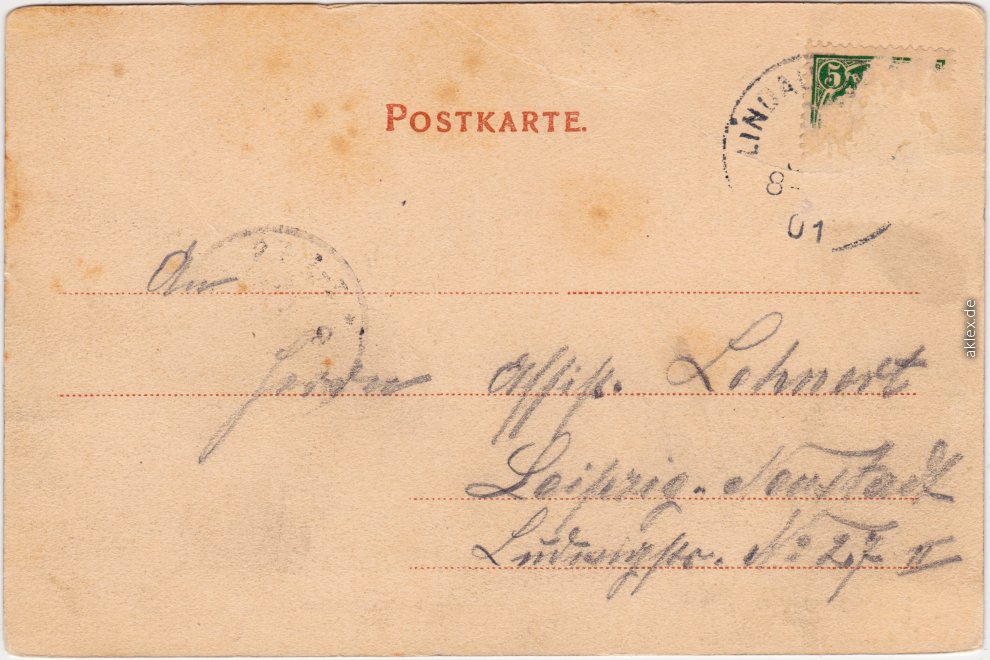 POSTKARTE.
5
LINDAU
8
01
An
Herrn Assist. Lehnert
Leipzig-Neustadt
Ludwigstr. No 27 II
aklex.de